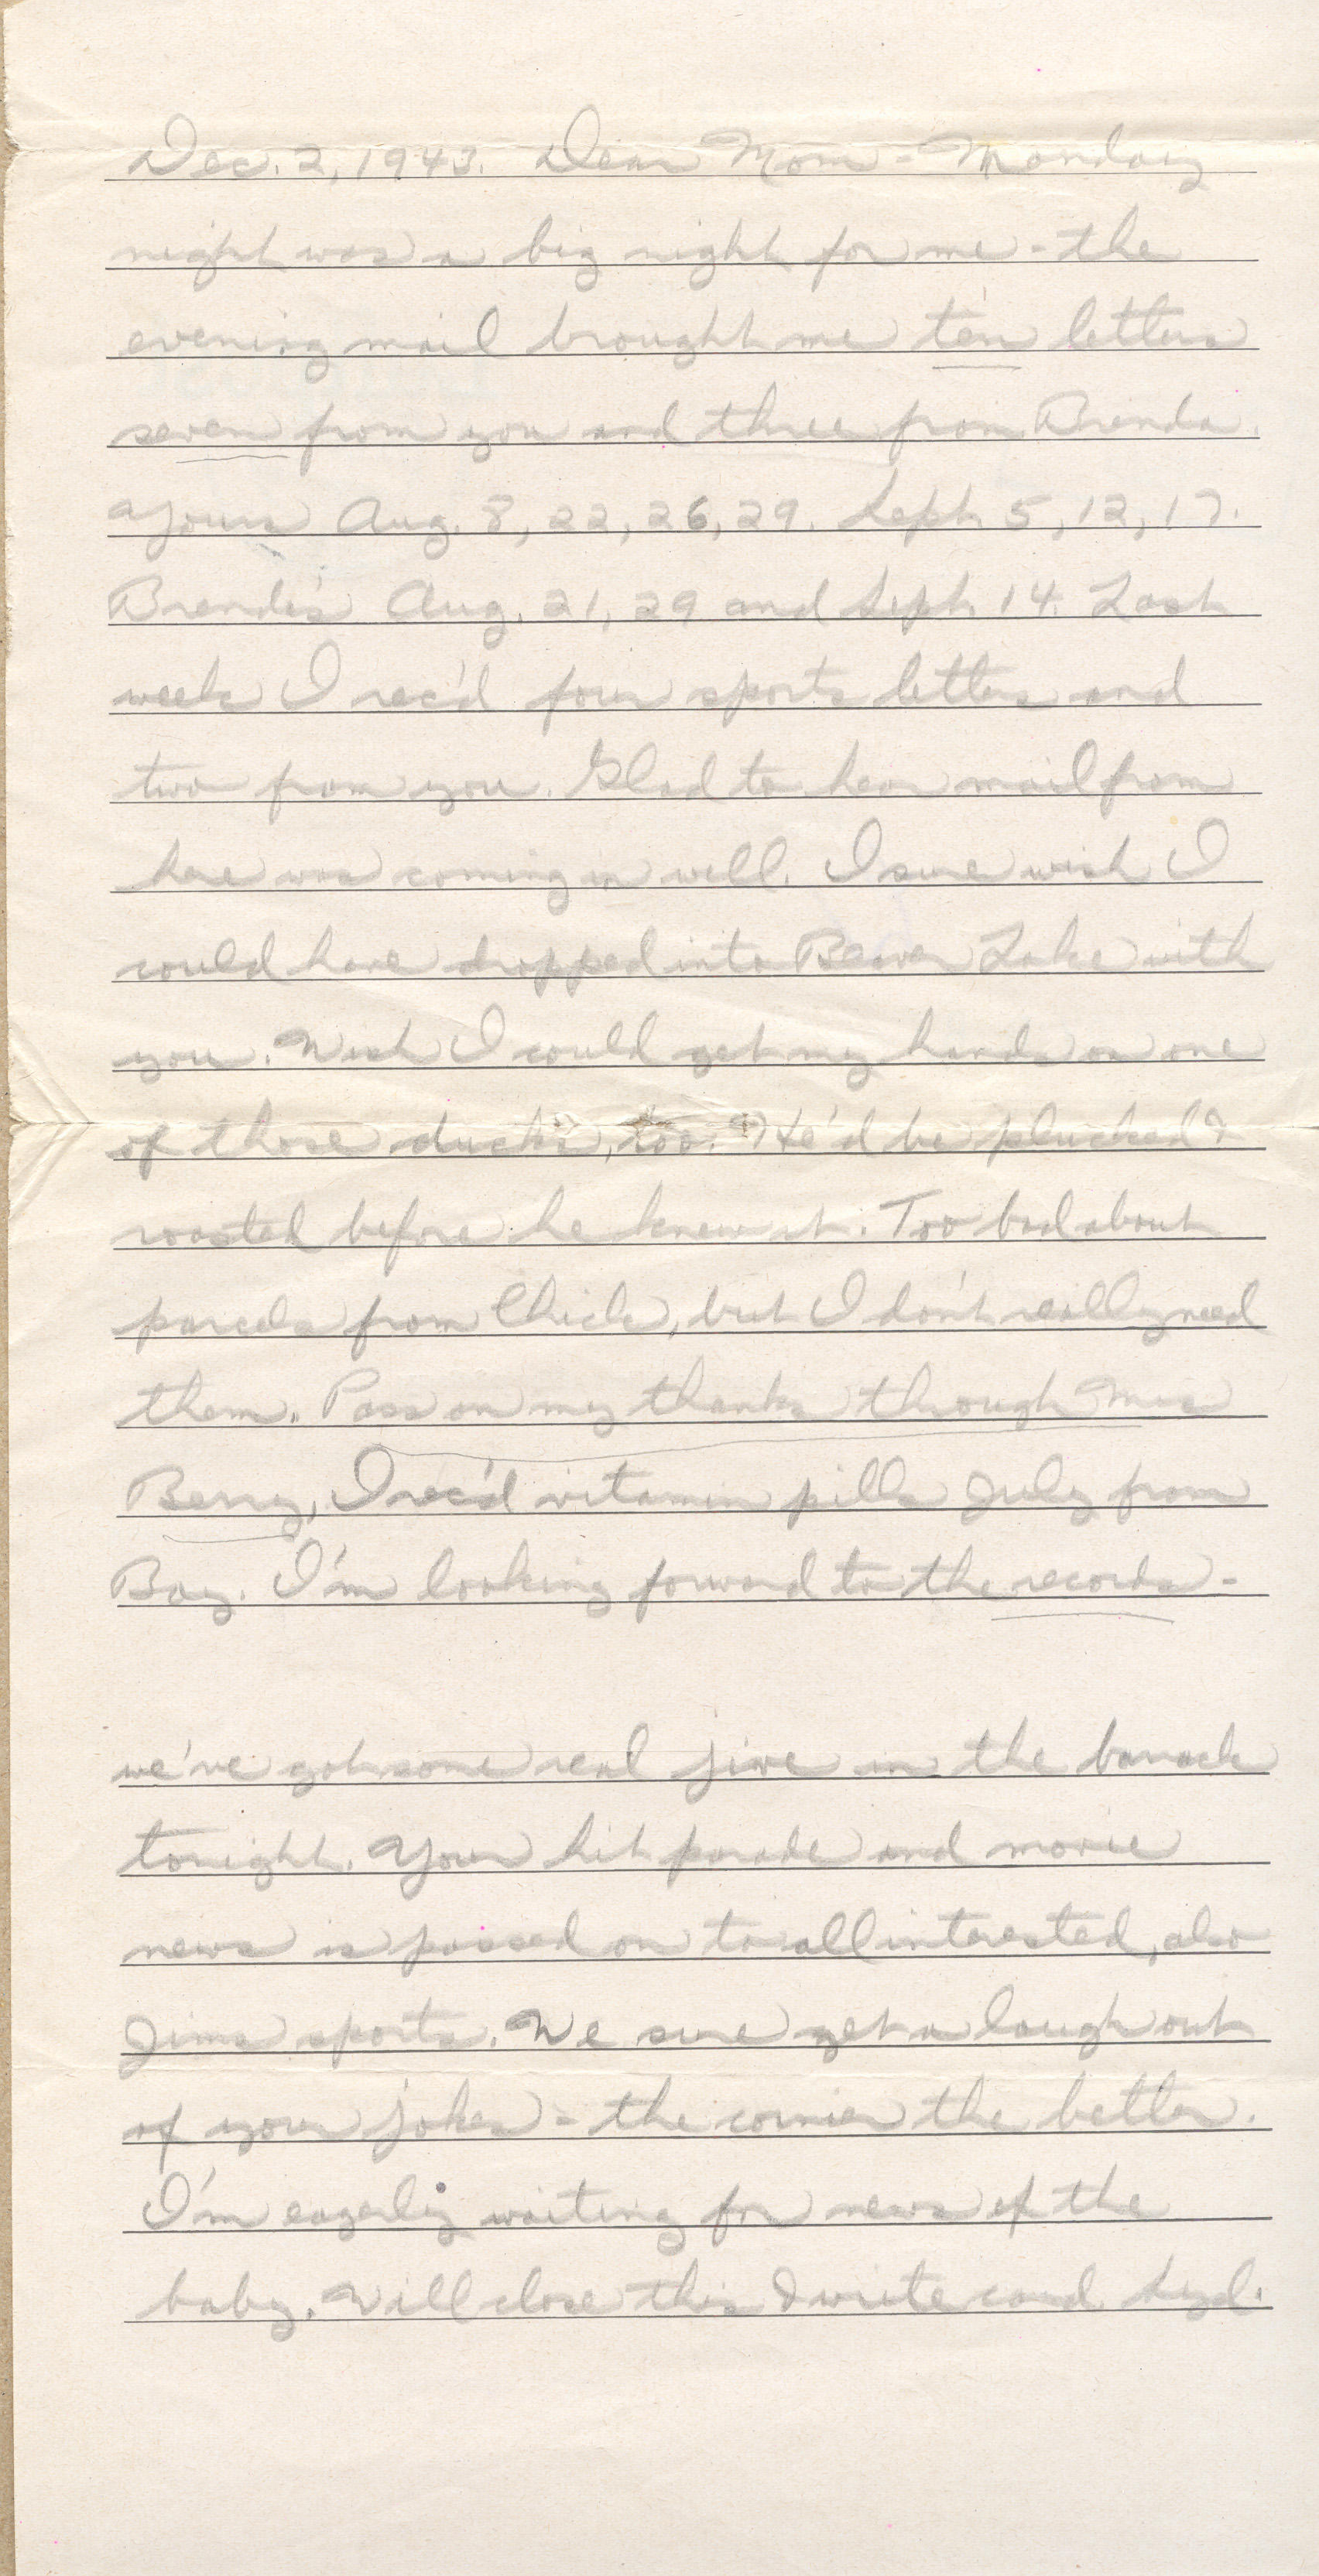 Dec. 2, 1943. Dear Mom - Monday
night was a big night for me - the
evening mail brought me ten letters
seven from you and three from Brenda.
Yours Aug. 8, 22, 26, 29. Sept. 5, 12, 17.
Brenda's Aug. 21, 29 and Sept. 14. Last
week I rec'd four sports letters and
two from you. Glad to hear mail from
here was coming in well. I sure wish I
could have dropped into Beaver Lake with
you. Wish I could get my hands on one
of those ducks, too. He'd be plucked &
roasted before he knew it. Too bad about
parcels from Chick, but I don't really need
them. Pass on my thanks though Mrs
Berry, I rec'd vitamin pills July from
Bay. I'm looking forward to the records -
we've got some real jive in the barrack
tonight. Your hit parade and movie
news is passed on to all interested, also
Jims sports. We sure get a laugh out
of your jokes - the cornier the better.
I'm eagerly waiting for news of the
baby. Will close this & write card Syd.